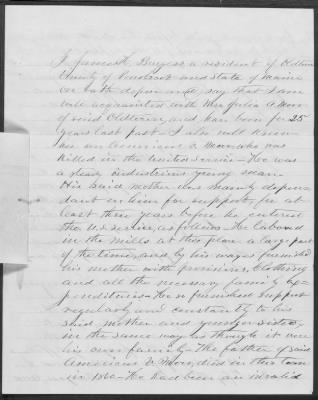 I James H. Burgess a resident of Oldtown
County of Penobscot and state of Maine
on oath depose and say that I am
well acquainted with Mrs Julia A. Moor
of said Oldtown, and have been for 25
years last past. I also well knew
her son Americus V. Moor who was
killed in the United service - He was
a steady industrious young man -
His said mother was mainly depen-
dant on him for support, for at
least three years before he entered
the U.S. service, as follows - He labored
in the mills at this place a large part
of the time, and by his wages furnished
his mother with provisions, clothing
and all the necessary family ex-
penditures - He furnished support
regularly and constantly to his
said mother and younger sisters,
in the same way as though it were
his own family - The father of said
Americus V. Moor, died in this town
in 1860 - He had been an invalid